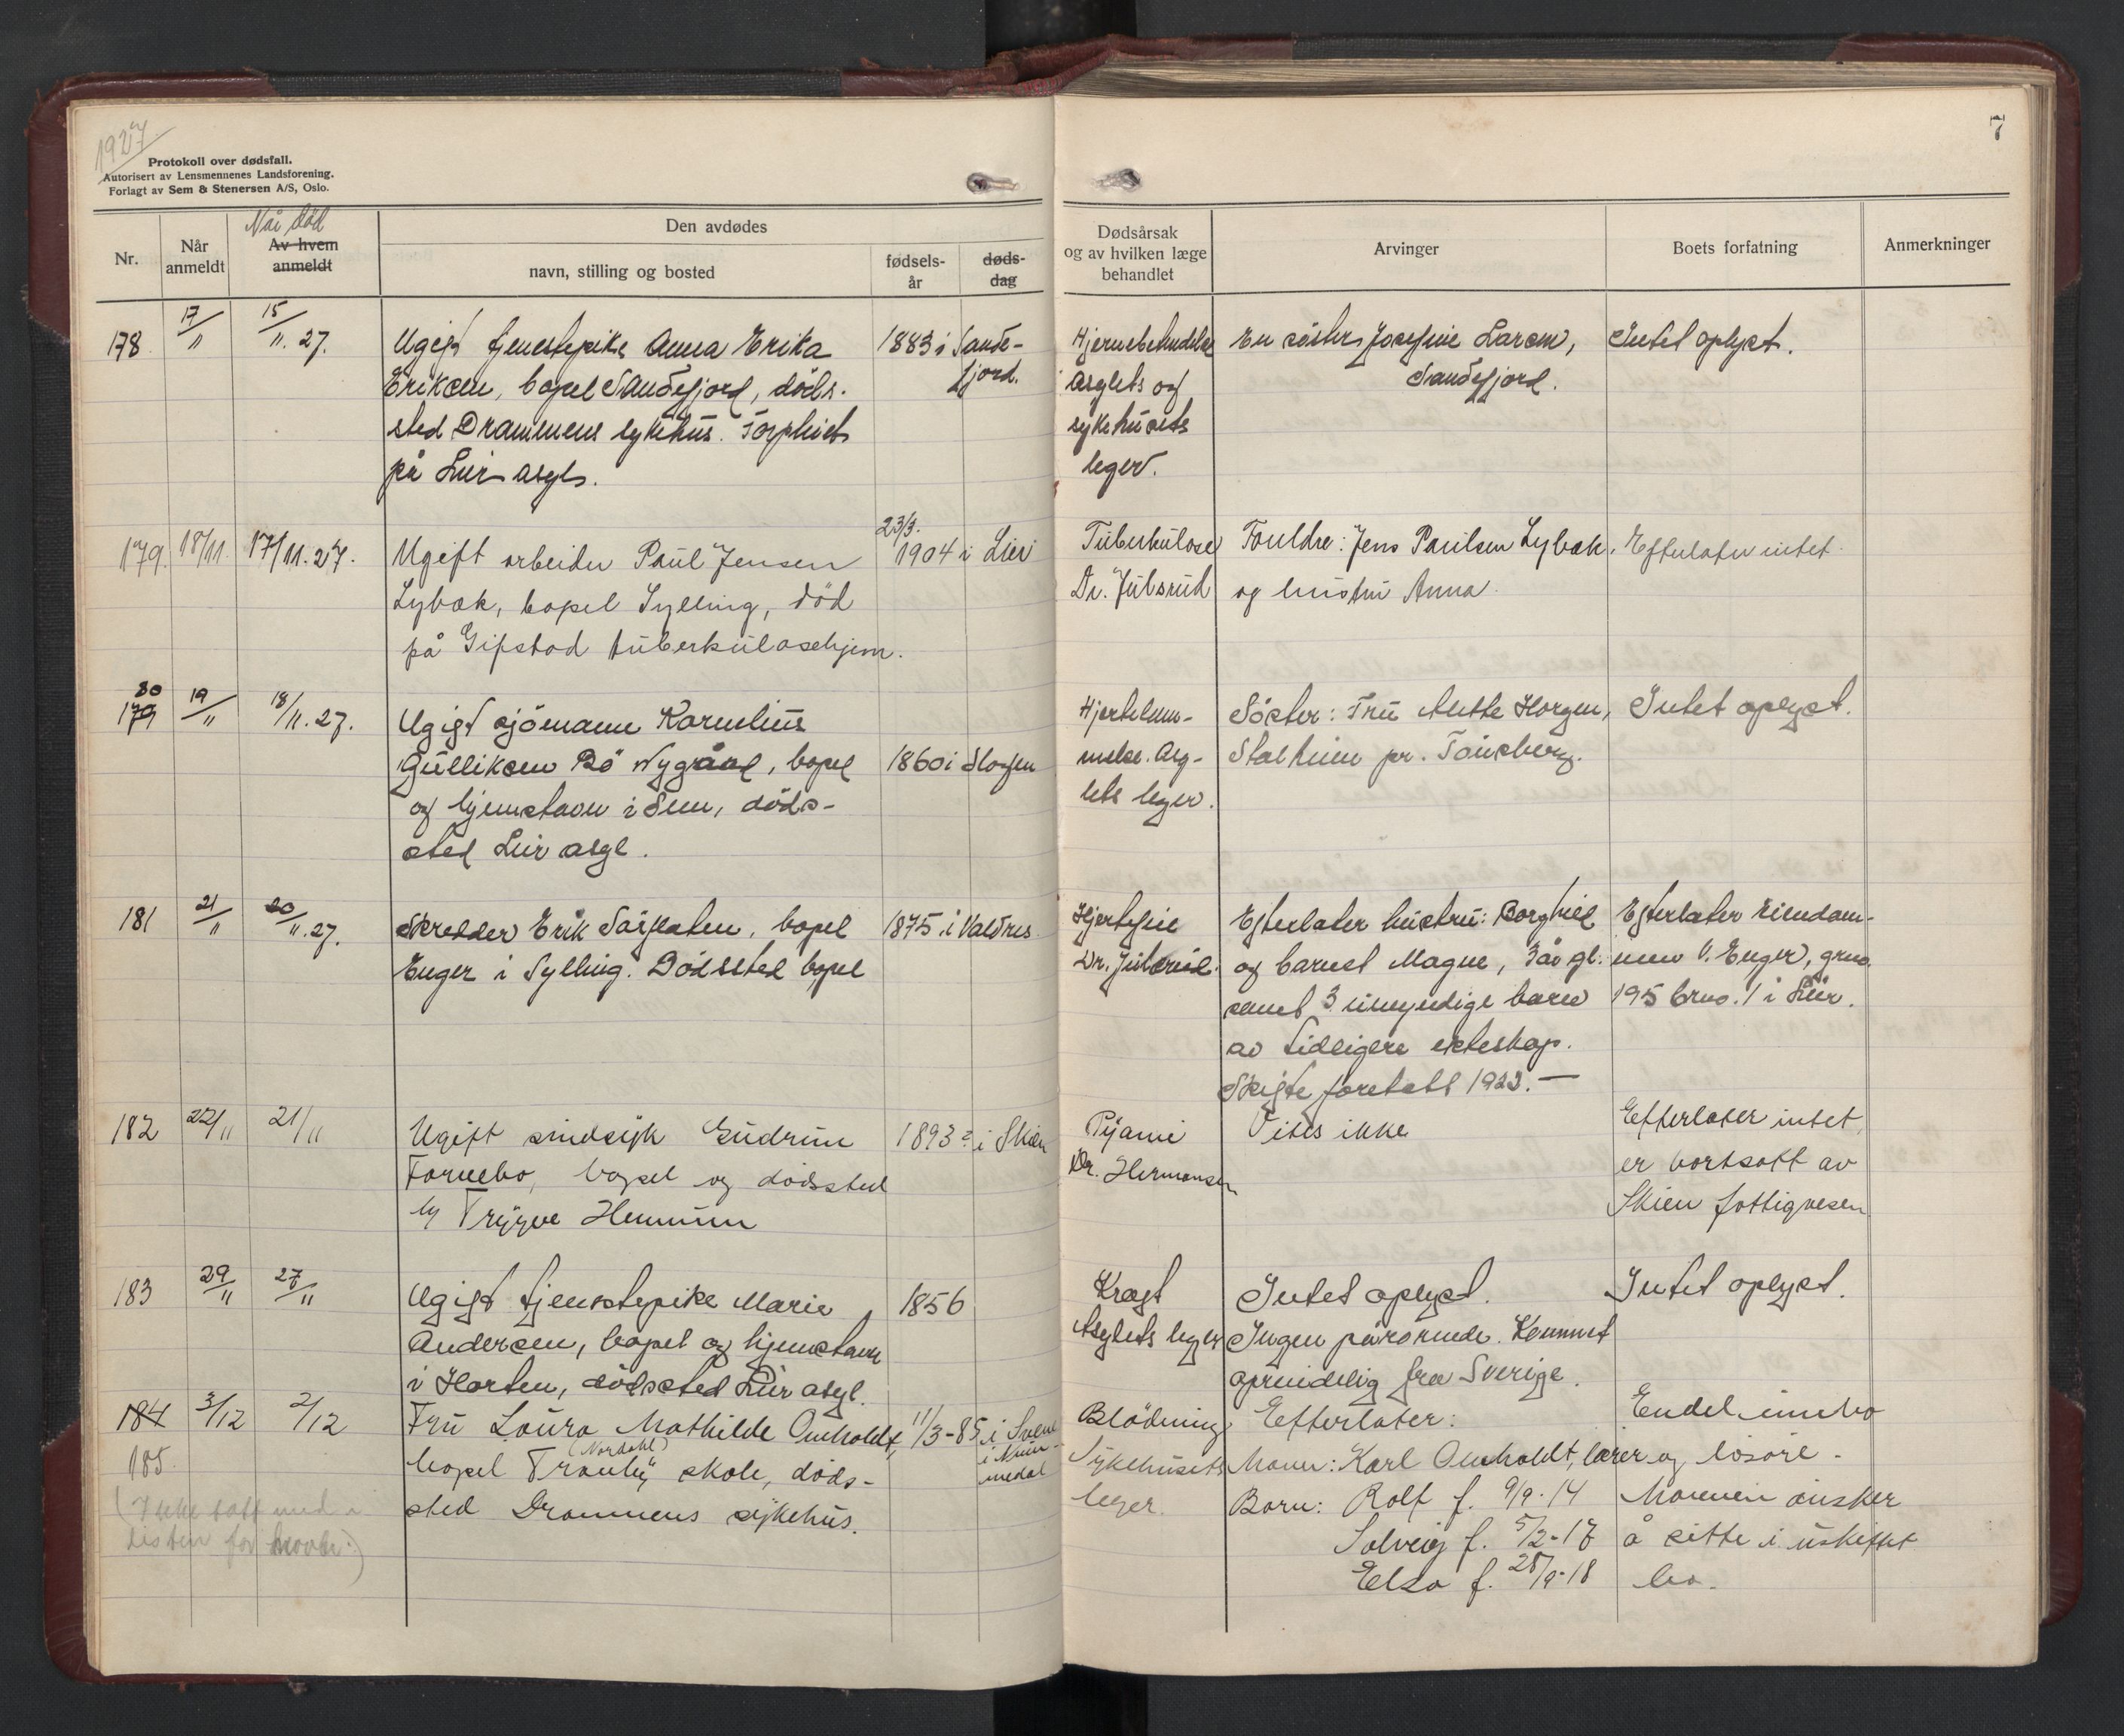 1927.
Protokoll over dødsfall.
Autorisert av Lensmennenes Landsforening.
Forlagt av Sem & Stenersen A/S, Oslo.
7
Nr.
Når anmeldt
Når død
Av hvem anmeldt
Den avdødes
navn, stilling og bosted
fødsels-
år
døds-
dag
Dødsårsak
og av hvilken læge
behandlet
Arvinger
Boets forfatning
Anmerkninger
178 17/11 15/11. 27.
Ugift tjenestepike Anna Erika
Eriksen, bopel Sandefjord, døds-
sted Drammens sykehus. Forpleiet
på Lier asyl.
1883 i Sande-
fjord.
Asylets og
sykehusets
leger.
En søster, Josefine Larsen,
Sandefjord.
Intet oplyst.
179. 18/11. 17/11. 27.
Ugift arbeider Paul Jensen
Lybæk, bopel Sylling, død
på Gifstad tuberkulosehjem.
23/3.
1904 i Lier
Tuberkulose
Dr. Julsrud
Foreldre: Jens Paulsen Lybæk,
og hustru Anna
Efterlater intet.
80
179 19/11 18/11. 27.
Ugift sjömann Kornelius
Gulliksen Bö Nygård, bopel
og hjemstavn i Sem, döds-
sted Lier asyl.
1860 i Slagen
Hjertelam-
melse. Asy-
lets leger.
Söster: Fru Mette Horgen,
pr. Tönsberg.
Intet oplyst.
181 21/11 20/11. 27.
Skredder Erik Sörflaten, bopel
Enger i Sylling. Dödssted bopel
1875 i Valdres
Hjertefeil
Dr. Julsrud.
Efterlater hustru: Borghild
og barnet Magne, 3 år gl.
samt 3 umyndige barn
av tidligere ekteskap.
Skifte foretatt 1923. —
Efterlater eiendom-
men V. Enger, grno.
195 brno. 1 i Lier.
182 22/11 21/11
Ugift sindsyk Gudrun
Fornebo, bopel og dödssted
hj Trygve Hennum
1893? i Skien
Pyämi
Dr. Hermansen
Vites ikke
Efterlater intet,
er bortsatt av
Skien fattigvesen
183 29/11 27/11
Ugift tjenestepike Marie
Andersen, bopel og hjemstavn
i Horten, dödssted Lier asyl.
1856
Kræft
Asylets leger
Intet oplyst.
Ingen pårörende. Kommet
oprindelig fra Sverige.
Intet oplyst.
184 3/12 2/12
185.
(Ikke tatt med i
listen for novbr.)
Fru Laura Mathilde Omholdt,
(Nordahl)
bopel Tranby skole, döds-
sted Drammens sykehus.
11/3-85 i Svene
i Num-
medal
Blödning
Sykehusets
leger.
Efterlater:
Mann: Karl Omholdt, lærer
Barn: Rolf f. 9/9-14
Solveig f. 5/2-17
Elsa f. 28/9-18
Endel innbo
og lösöre.
Mannen önsker
å sitte i uskiftet
bo.